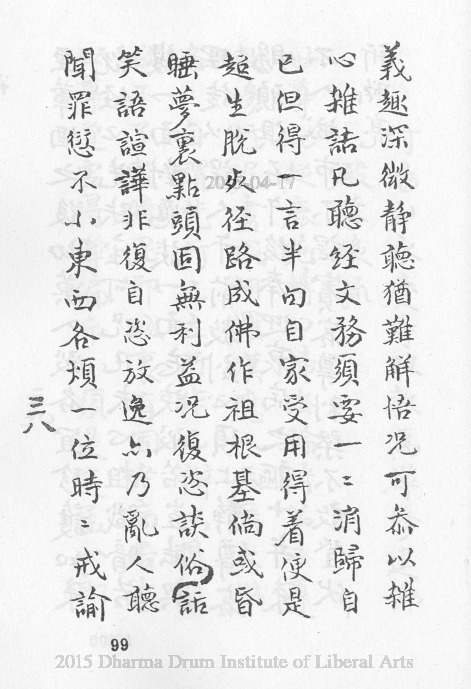 義趣深微靜聽猶難解悟况可叅以雜
心雜話凡聽經文務須要一〻消歸自
已但得一言半句自家受用得着便是
超生脫死徑路成佛作祖根基倘或昏
睡夢裏點頭固無利益况復恣談俗話
笑語諠譁非復自恣放逸亦乃亂人聽
聞罪愆不小東西各煩一位時〻戒諭
三八
99
2015-04-17
2015 Dharma Drum Institute of Liberal Arts